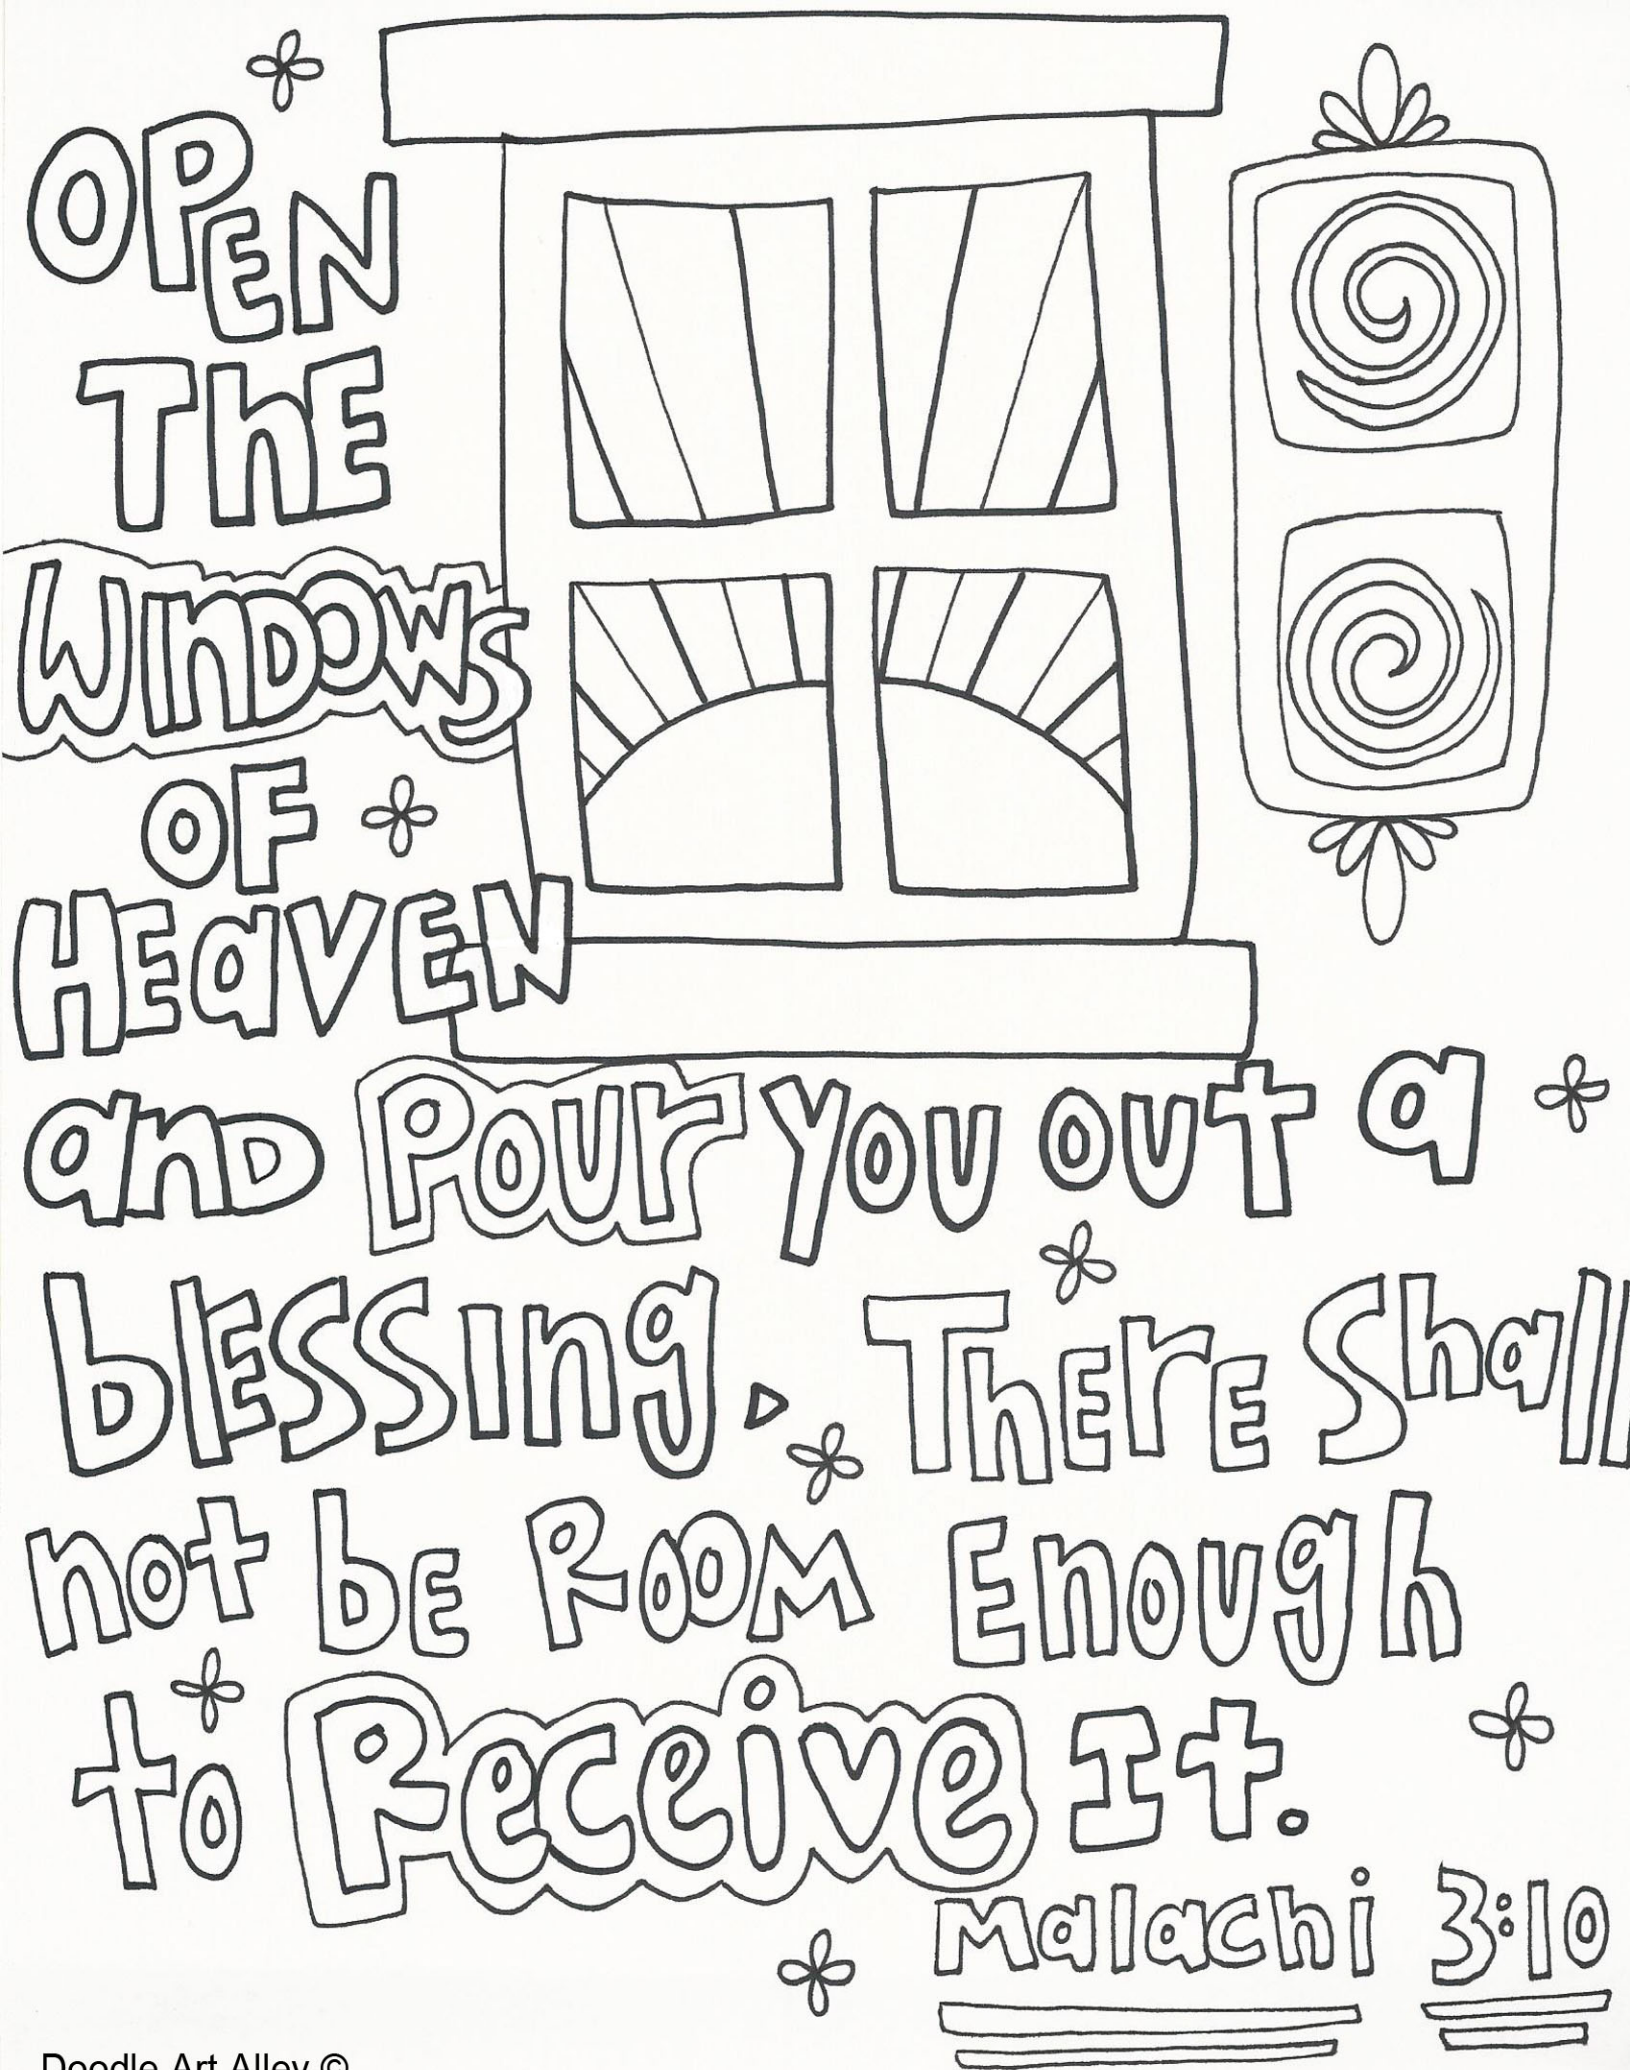 OPEN
ThE
WINDOWS
OF
HEaVEN
and Pour you out a
blEssing. ThErE Shall
not bE ROOM Enough
to Receive It.
Malachi 3:10
Doodle Art Alley ©